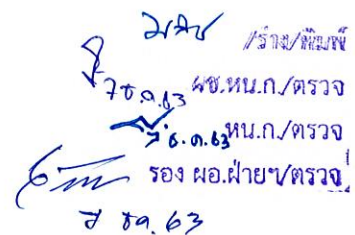 /ร่าง/พิมพ์
7 ธ.ค.63 ผช.หน.ก./ตรวจ
7 ธ.ค.63 หน.ก./ตรวจ
รอง ผอ.ฝ่ายฯ/ตรวจ
ธค.63